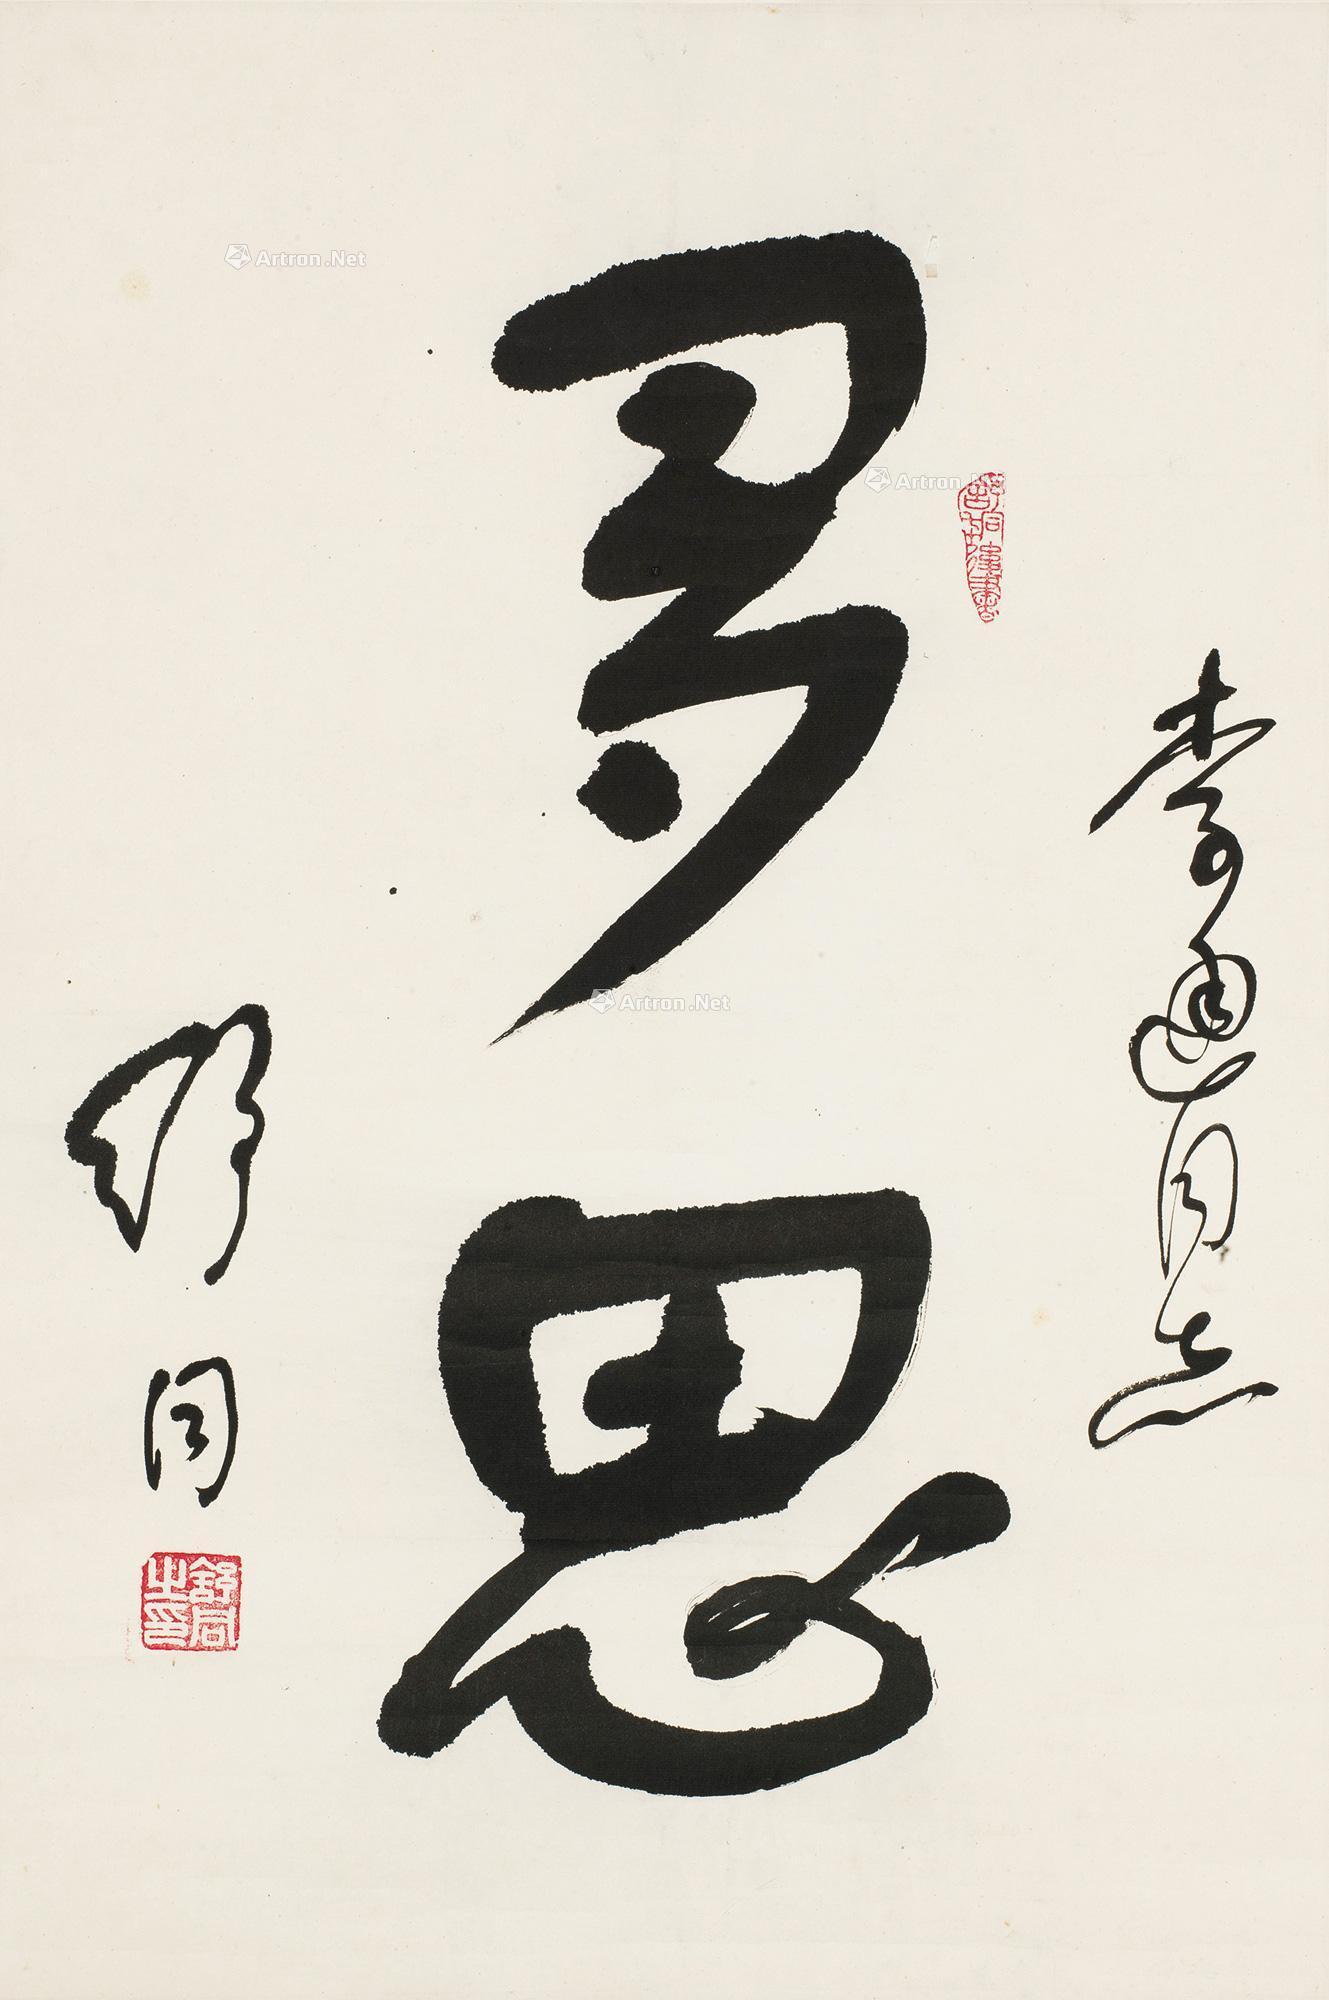 李同志
多思
舒同
舒同之印
Artron.Net
Artron.Net
Artron.Net